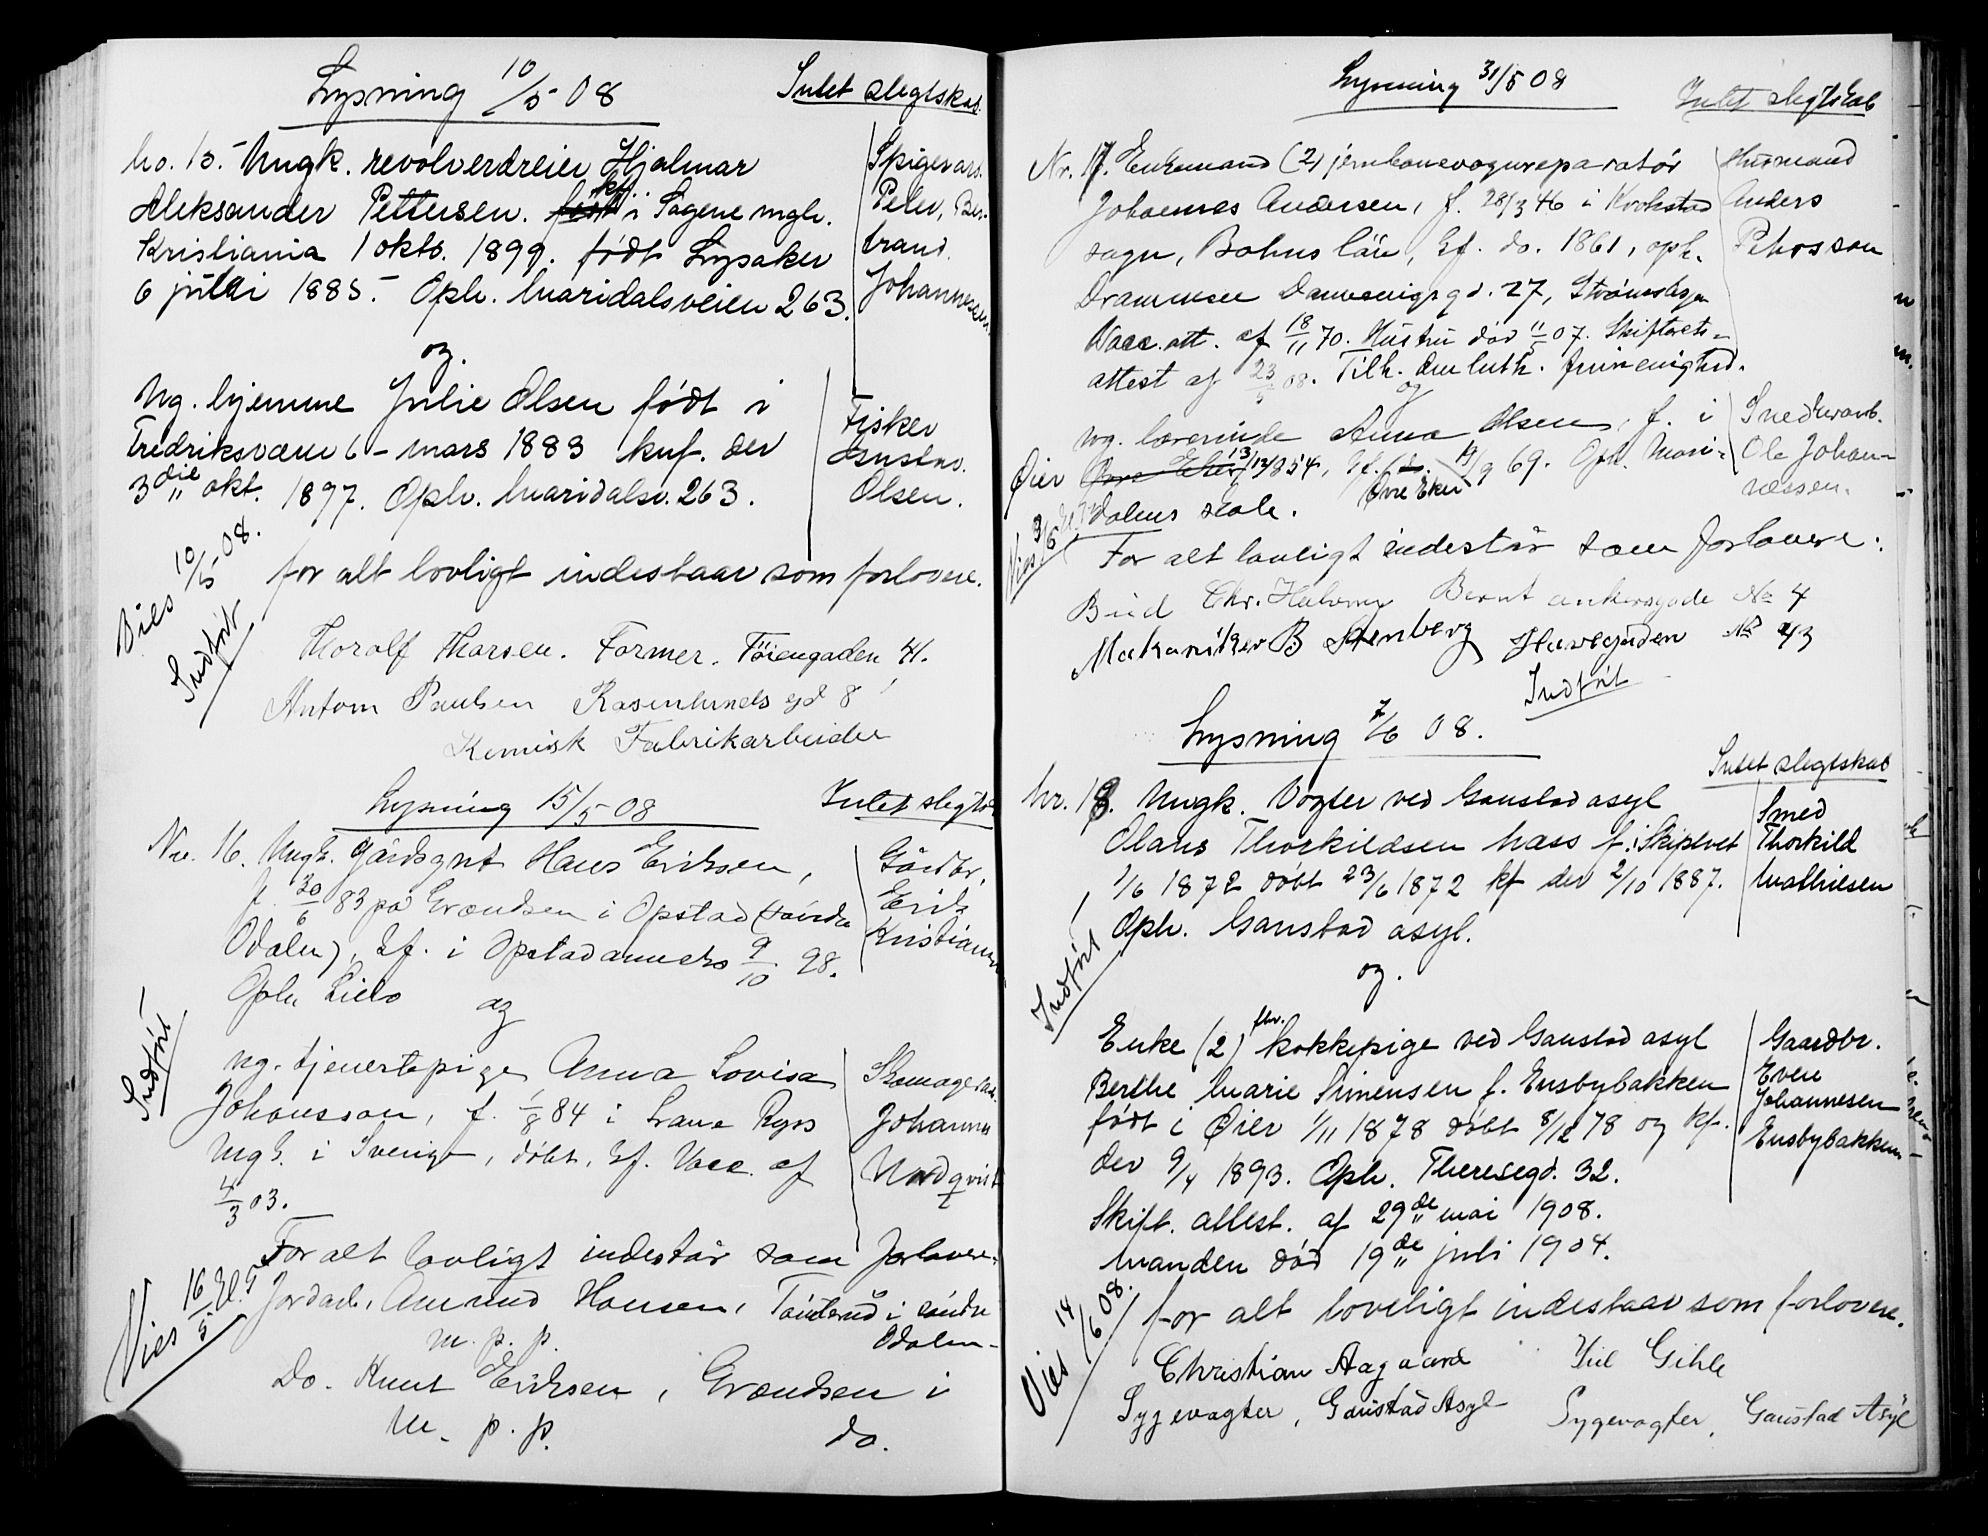 Lysning 10/5 08
Intet slegtskab.
No. 15. Ungk. revolverdreier Hjalmar
Aleksander Pettersen. født kf. i Sagene mgh.
Kristiania 1 okto. 1899. født Lysaker
6 juli 1885. Oph. Maridalsveien 263.
Skigevarb.
Peder, Ber-
trand
Johannesen
og.
Ug. hjemme Julie Olsen født i
Fredriksværn 6 mars 1883 knf. der
3die okt. 1897. Oph. Maridalsv. 263.
Fisker
Gustav
Olsen.
Vies 10/5 08.
Indført
for alt lovligt indestaar som forlovere.
Thoralf Thorsen. Former. Töiengaden 41.
Antom Paulsen Rosenlunds gd 8
Kemisk Fabrikarbeider
Lysning 15/5 08
Intet slegtsk
Nr. 16. Ungk. gårdsgut Hans Eriksen,
f. 30/6 83 på Grændsen i Opstad (søndre
Odalen), kf. i Opstad anneks 9/10 98.
Oph Lillo
Gårdbr.
Erik
Kristiansen
og
Indført
ug. tjenestepige Anna Lovisa
Johansson, f. 1/8 84 i Lane Ryrs
mgh. i Sverige, døbt, kf. Vacc. af
4/3 03.
Skomagerarb.
Johannes
Nordqvist
For alt lovligt indestår som forlovere:
Vies 16/5 El. G
Jordarb. Amund Hansen, Tønterud i søndre
m. p. p. Odalen
Do. Knut Eriksen, Grændsen i
m. p. p. do.
Lysning 31/5 08
Intet slegtskab
Nr. 17. Enkemand (2) jernbanevognreparatør
Johannes Andersen, f. 28/3 46 i Krokstad
sogn, Bohus län, kf. do. 1861, oph.
Drammen Danvenigs gd. 27, Strømsheien
Vacc. att. af 18/11 70. Hustru død 11/5 07. Skifterets-
attest af 23/5 08. Tilh. den luth. frimenighed.
Husmand
Anders
Petersson
og
ug. lærerinde Anna Olsen, f. i
Øier Øvre Eker 13/12 1854, kf. do. Øvre Eker 19/9 69. Oph. Mari-
dalens skole.
Snedkerarb.
Ole Johan-
nessen.
Vies 3/6
For alt lovligt indestår som forlovere:
Bud Chr. Halvorsen Bernt ankersgade No 4
Makaniker B Stenberg Havegaden No 43
Indført
Lysning 7/6 08.
Intet slegtskab
Nr. 18. Ungk. Vogter ved Gaustad asyl
Olaus Thorkildsen Mass f. i Skiptvet
1/6 1872 døbt 23/6 1872 kf der 2/10 1887.
Oph. Gaustad asyl.
Smed
Thorkild
Mathiesen
Indført
og.
Enke (2) fhv. kokkepige ved Gaustad asyl
Berthe Marie Simensen f. Ensbybakken
født i Øier 1/11 1878 døbt 8/12 78 og kf.
der 9/4 1893. Oph. Theresegd. 32.
Skift. attest. af 29de mai 1908.
Manden død 19de juli 1904.
Gaardbr.
Even
Johannesen
Ensbybakken
Vies 14/6 08.
for alt loveligt indestaar som forlovere.
Christian Aagaard Jul Gihle
Sygevogter, Gaustad Asyl Sygevogter, Gaustad Asyl